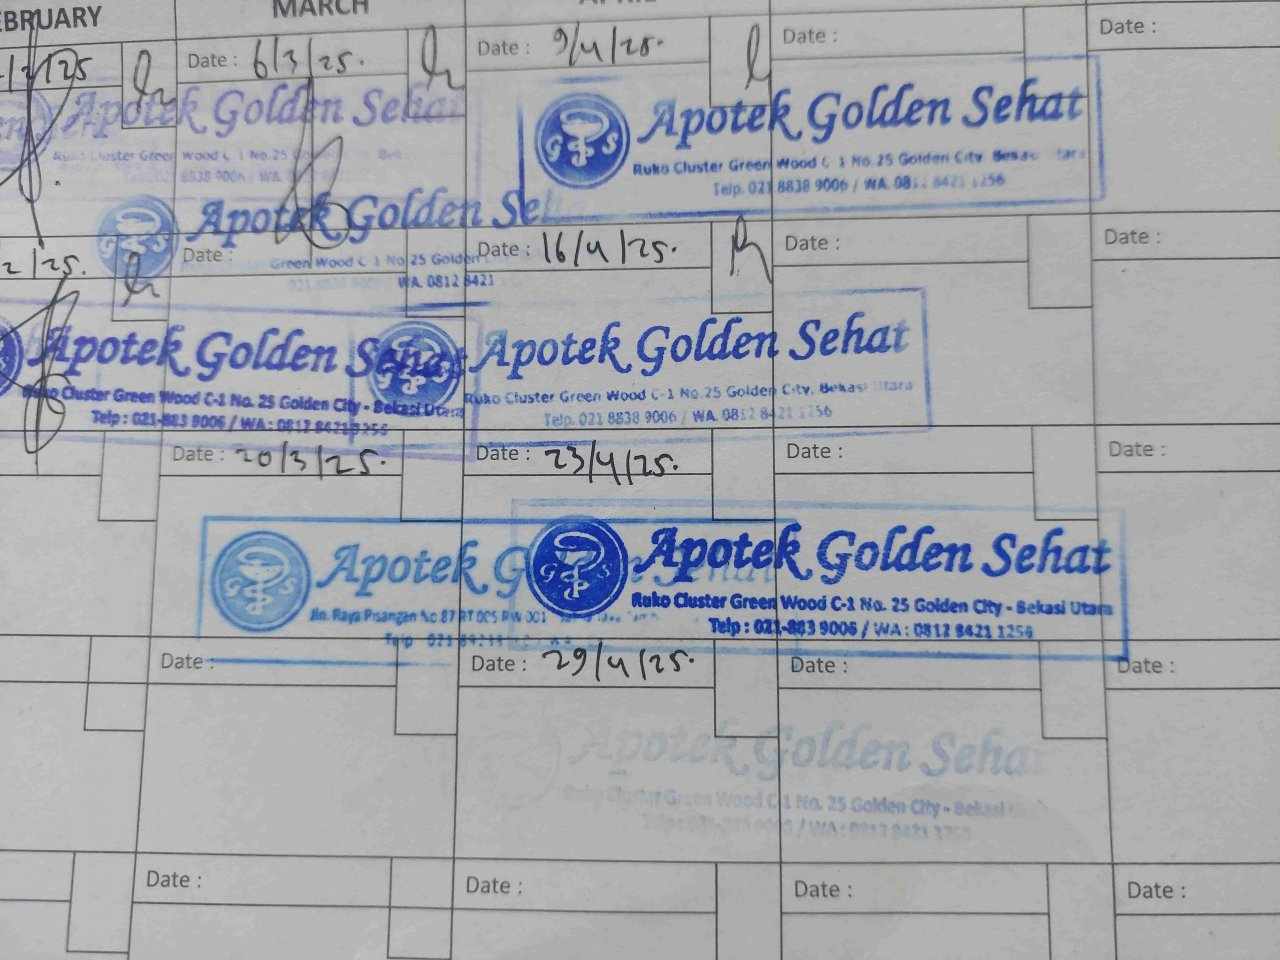 MARCH
Date : 6/3/25.
Date : 9/4/25.
Date :
Date :
Apotek Golden Sehat
Apotek Golden Sehat
Ruko Cluster Green Wood C-1 No.25 Golden City, Bekasi Utara
Telp. 021 8838 9006 / WA. 0812 8421 1256
Apotek Golden
Date :
Green Wood C-1 No 25 Golden
WA. 0812 8421
Date : 16/4/25.
Date :
Date :
Apotek Golden Sehat
Ruko Cluster Green Wood C-1 No. 25 Golden City - Bekasi Utara
Telp : 021-883 9006 / WA : 0812 8421 1256
Apotek Golden Sehat
Ruko Cluster Green Wood C-1 No.25 Golden City, Bekasi Utara
Telp. 021 8838 9006 / WA. 0812 8421 1256
Date : 20/3/25.
Date : 23/4/25.
Date :
Date :
Apotek
Jln. Raya Pisangan No 87 RT 005 RW 001
Telp
Apotek Golden Sehat
Ruko Cluster Green Wood C-1 No. 25 Golden City - Bekasi Utara
Telp : 021-883 9006 / WA : 0812 8421 1256
Date :
Date : 29/4/25.
Date :
Date :
Apotek Golden Sehat
Cluster Green Wood C-1 No. 25 Golden City - Bekasi
Date :
Date :
Date :
Date :